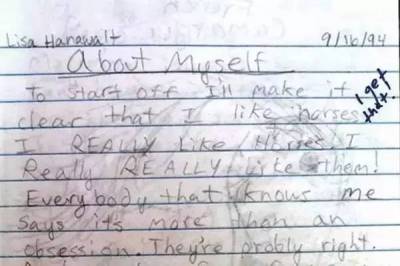 Lisa Hanawalt 9/16/94
About Myself
To start off I'll make it
clear that I like horses.
I get that!
I REALLY Like Horses. I
Really REALLY like them!
Everybody that knows me
says it's more then an
obsession. They're probly right.